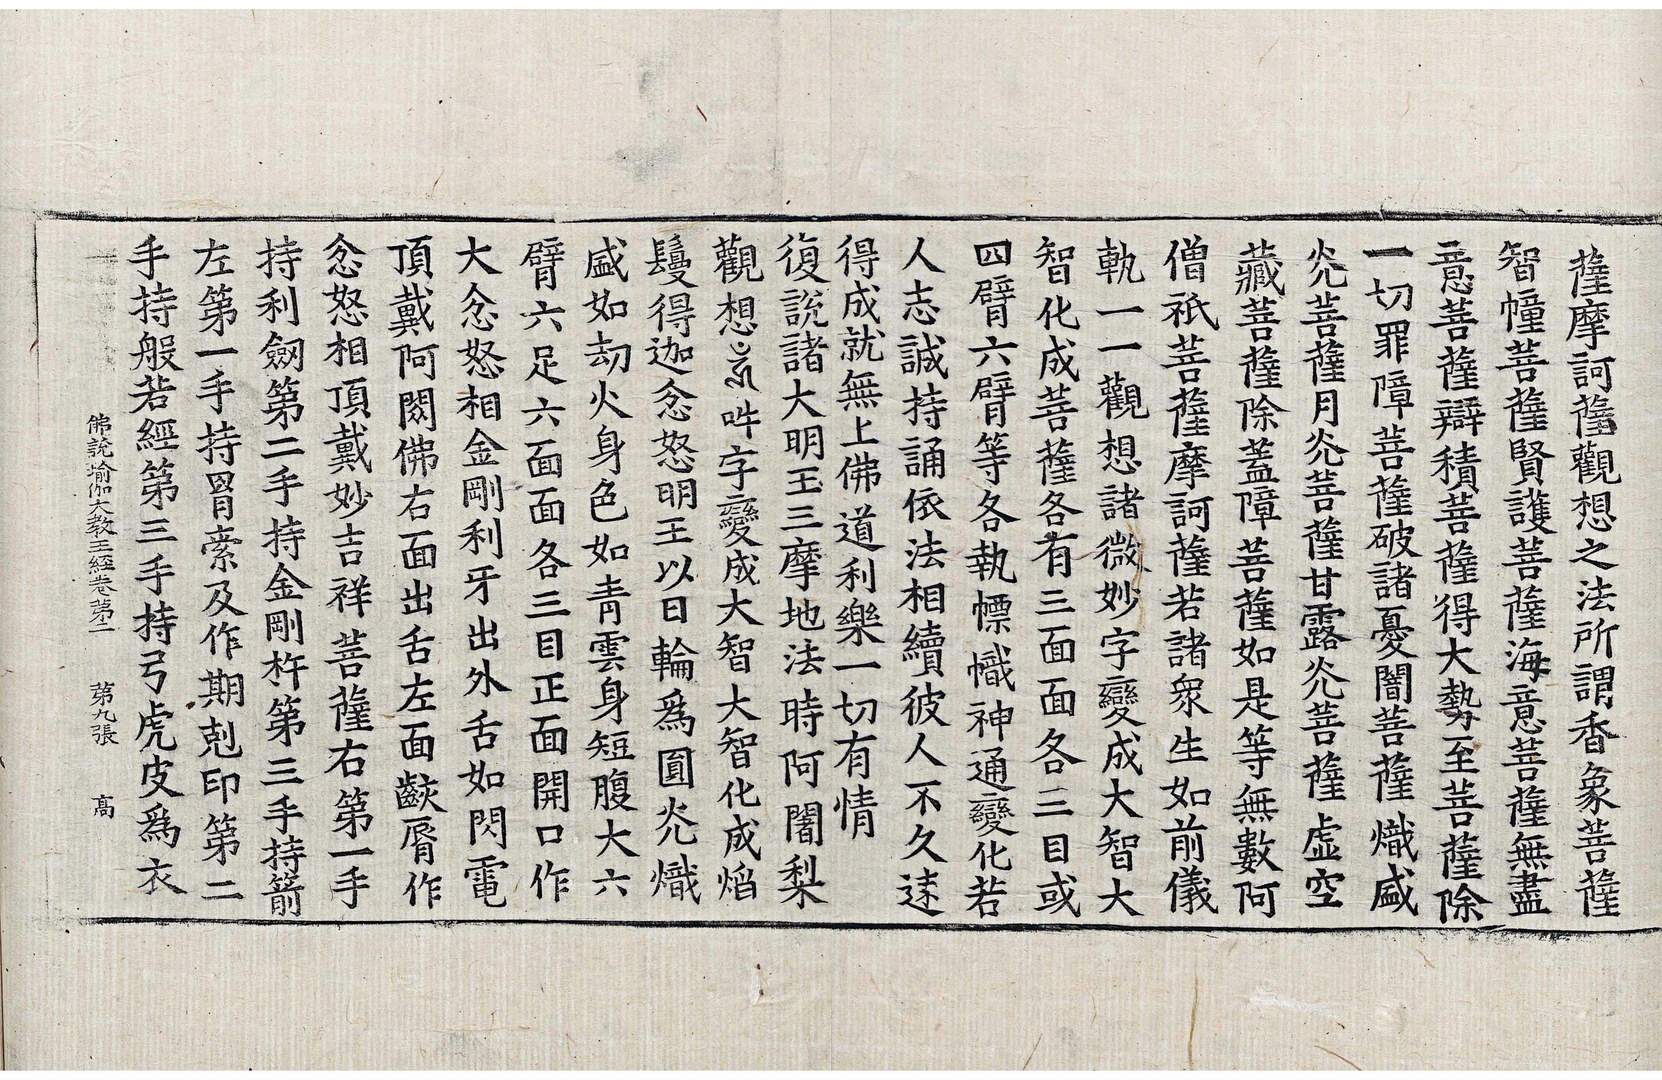 薩摩訶薩觀想之法所謂香象菩薩
智幢菩薩賢護菩薩海意菩薩無盡
意菩薩辯積菩薩得大勢至菩薩除
一切罪障菩薩破諸憂闇菩薩熾盛
光菩薩月光菩薩甘露光菩薩虛空
藏菩薩除蓋障菩薩如是等無數阿
僧祇菩薩摩訶薩若諸衆生如前儀
軌一一觀想諸微妙字變成大智大
智化成菩薩各有三面面各三目或
四臂六臂等各執幖幟神通變化若
人志誠持誦依法相續彼人不久速
得成就無上佛道利樂一切有情
復說諸大明王三摩地法時阿闍梨
觀想𑖮𑖳𑖽吽字變成大智大智化成焰
鬘得迦忿怒明王以日輪爲圓光熾
盛如劫火身色如青雲身短腹大六
臂六足六面面各三目正面開口作
大忿怒相金剛利牙出外舌如閃電
頂戴阿閦佛右面出舌左面齩脣作
忿怒相頂戴妙吉祥菩薩右第一手
持利劒第二手持金剛杵第三手持箭
左第一手持罥索及作期剋印第二
手持般若經第三手持弓虎皮爲衣
佛說瑜伽大教王經卷第二 第九張 髙